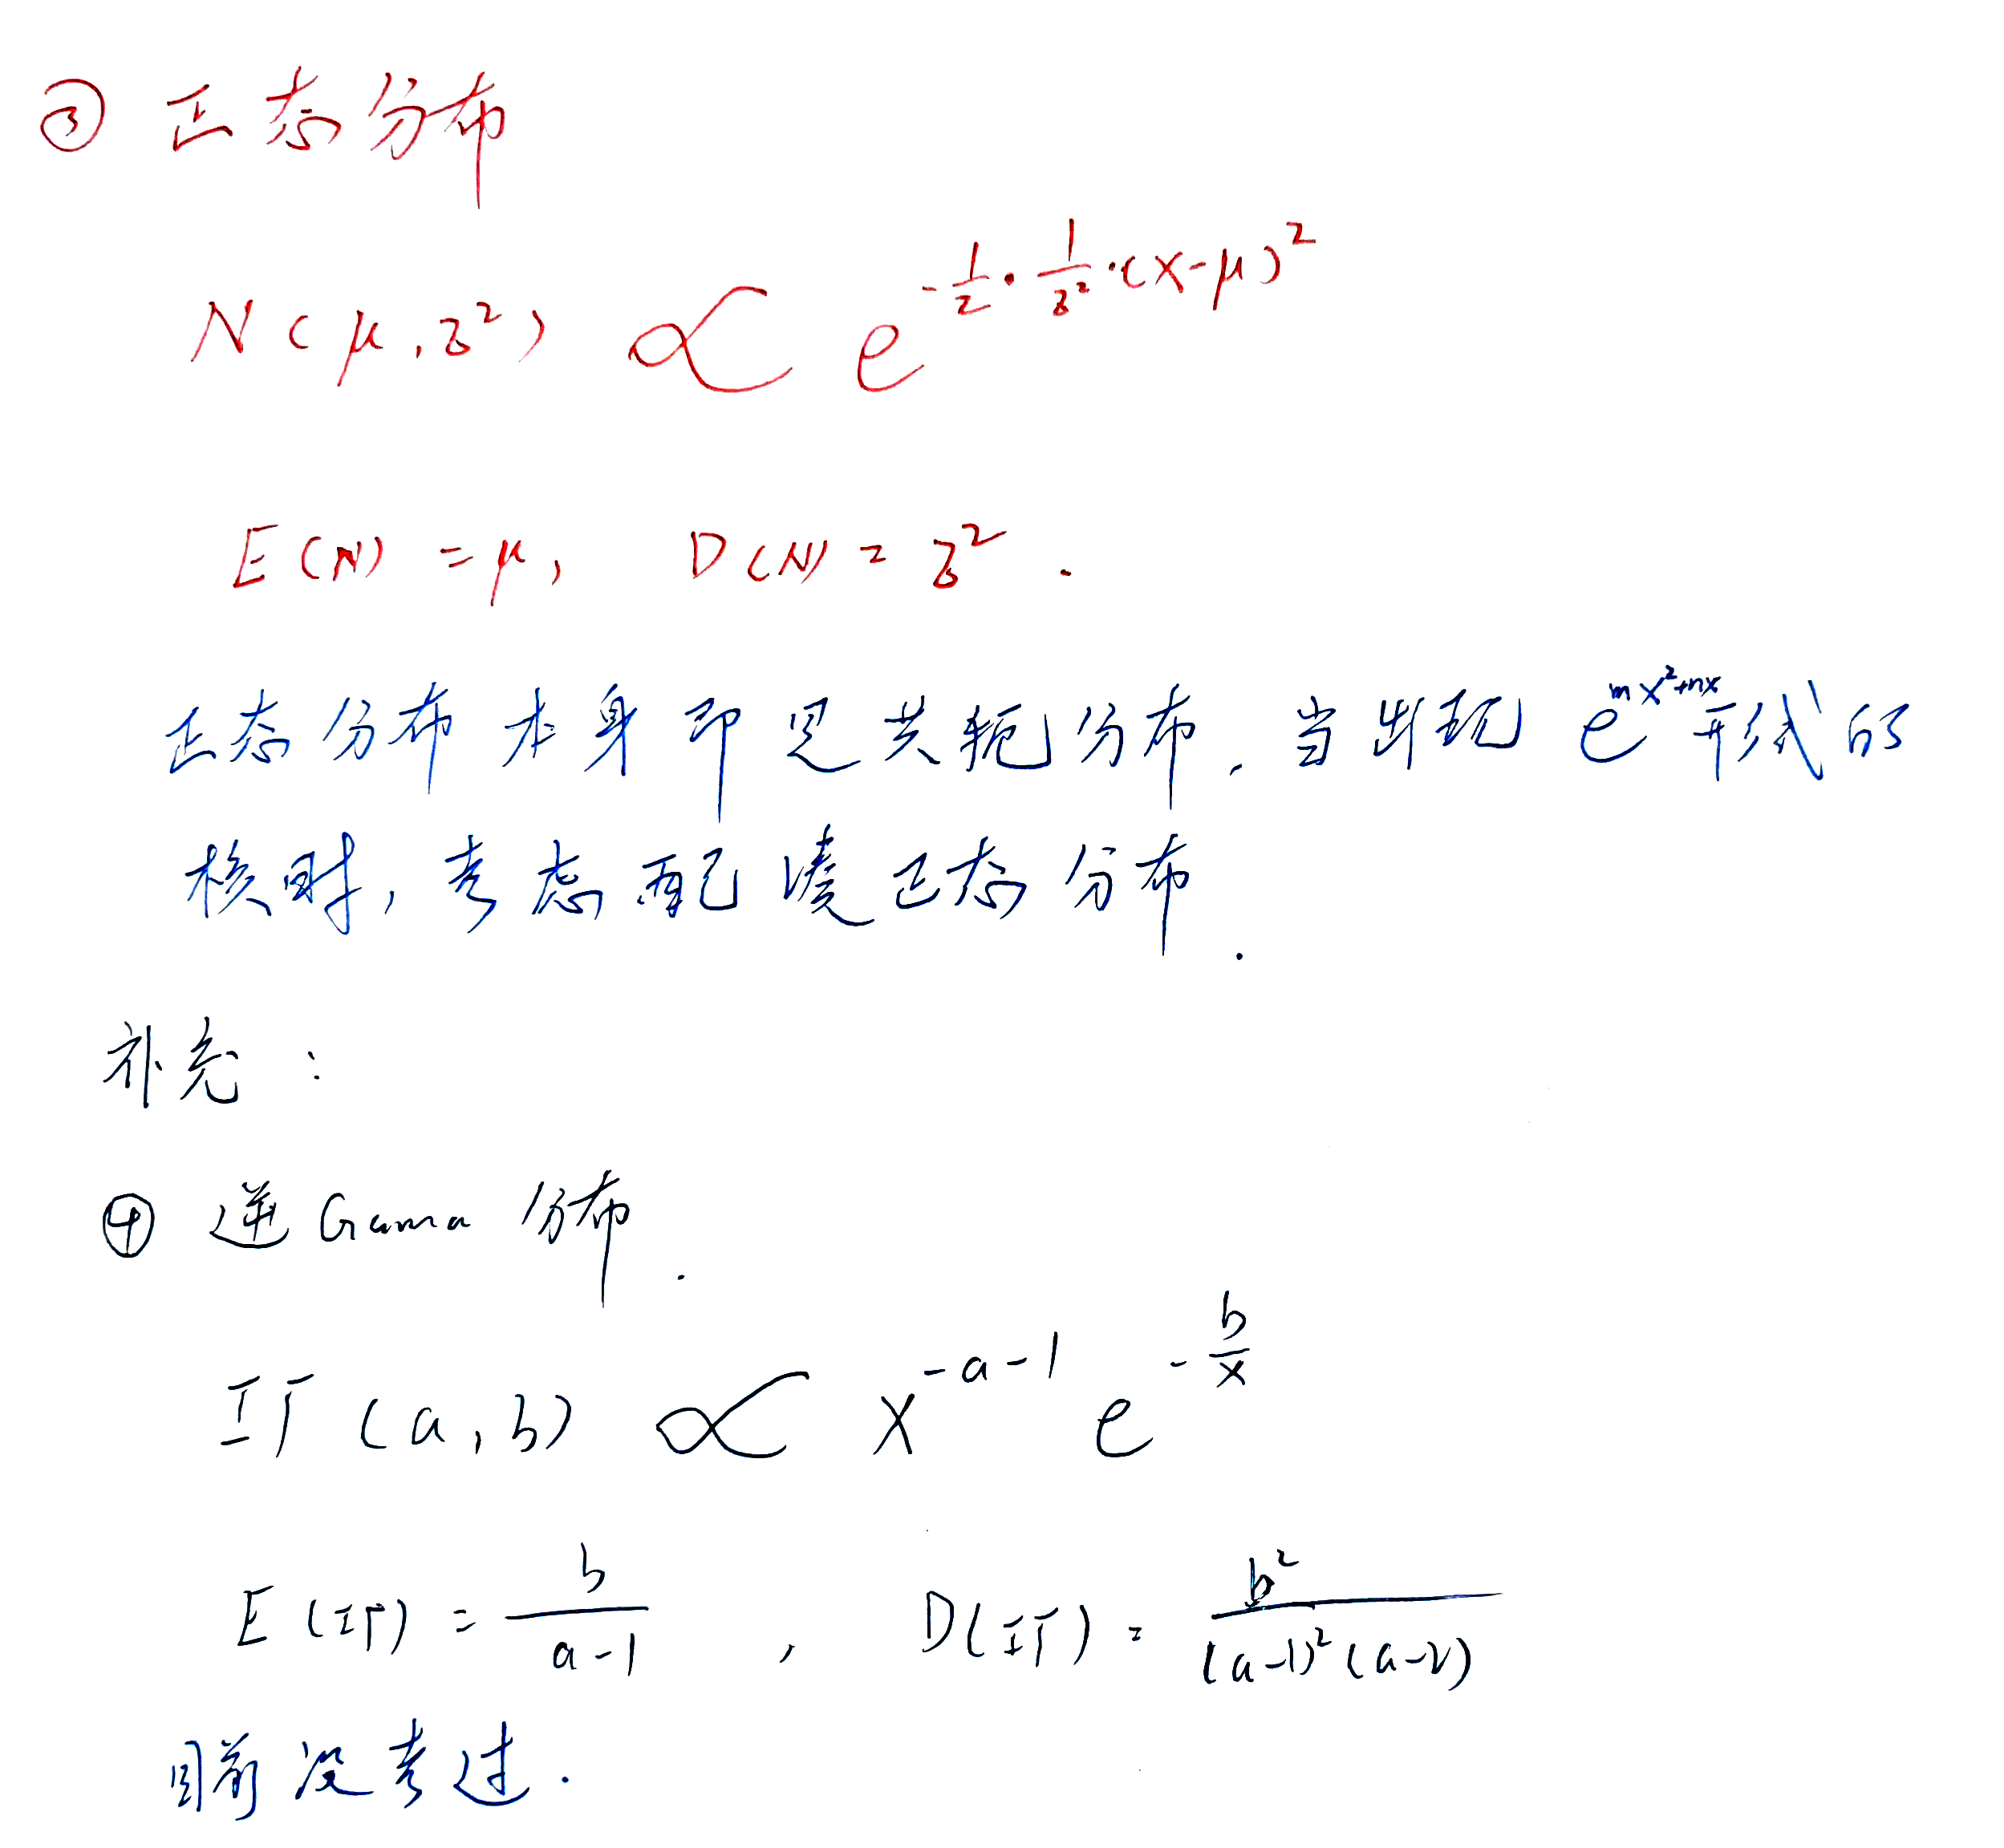 ③ 正态分布
N(μ,σ²) ∝ e^{-\frac{1}{2}·\frac{1}{σ²}·(x-μ)²}
E(N)=μ, D(N)=σ².
正态分布本身即是共轭分布.当出现 e^{mx²+nx} 形式的
核时,考虑配凑正态分布.
补充:
④ 逆Gama 分布.
IΓ(a,b) ∝ x^{-a-1} e^{-\frac{b}{x}}
E(IΓ)=\frac{b}{a-1}, D(IΓ)=\frac{b²}{(a-1)²(a-2)}
目前没考过.